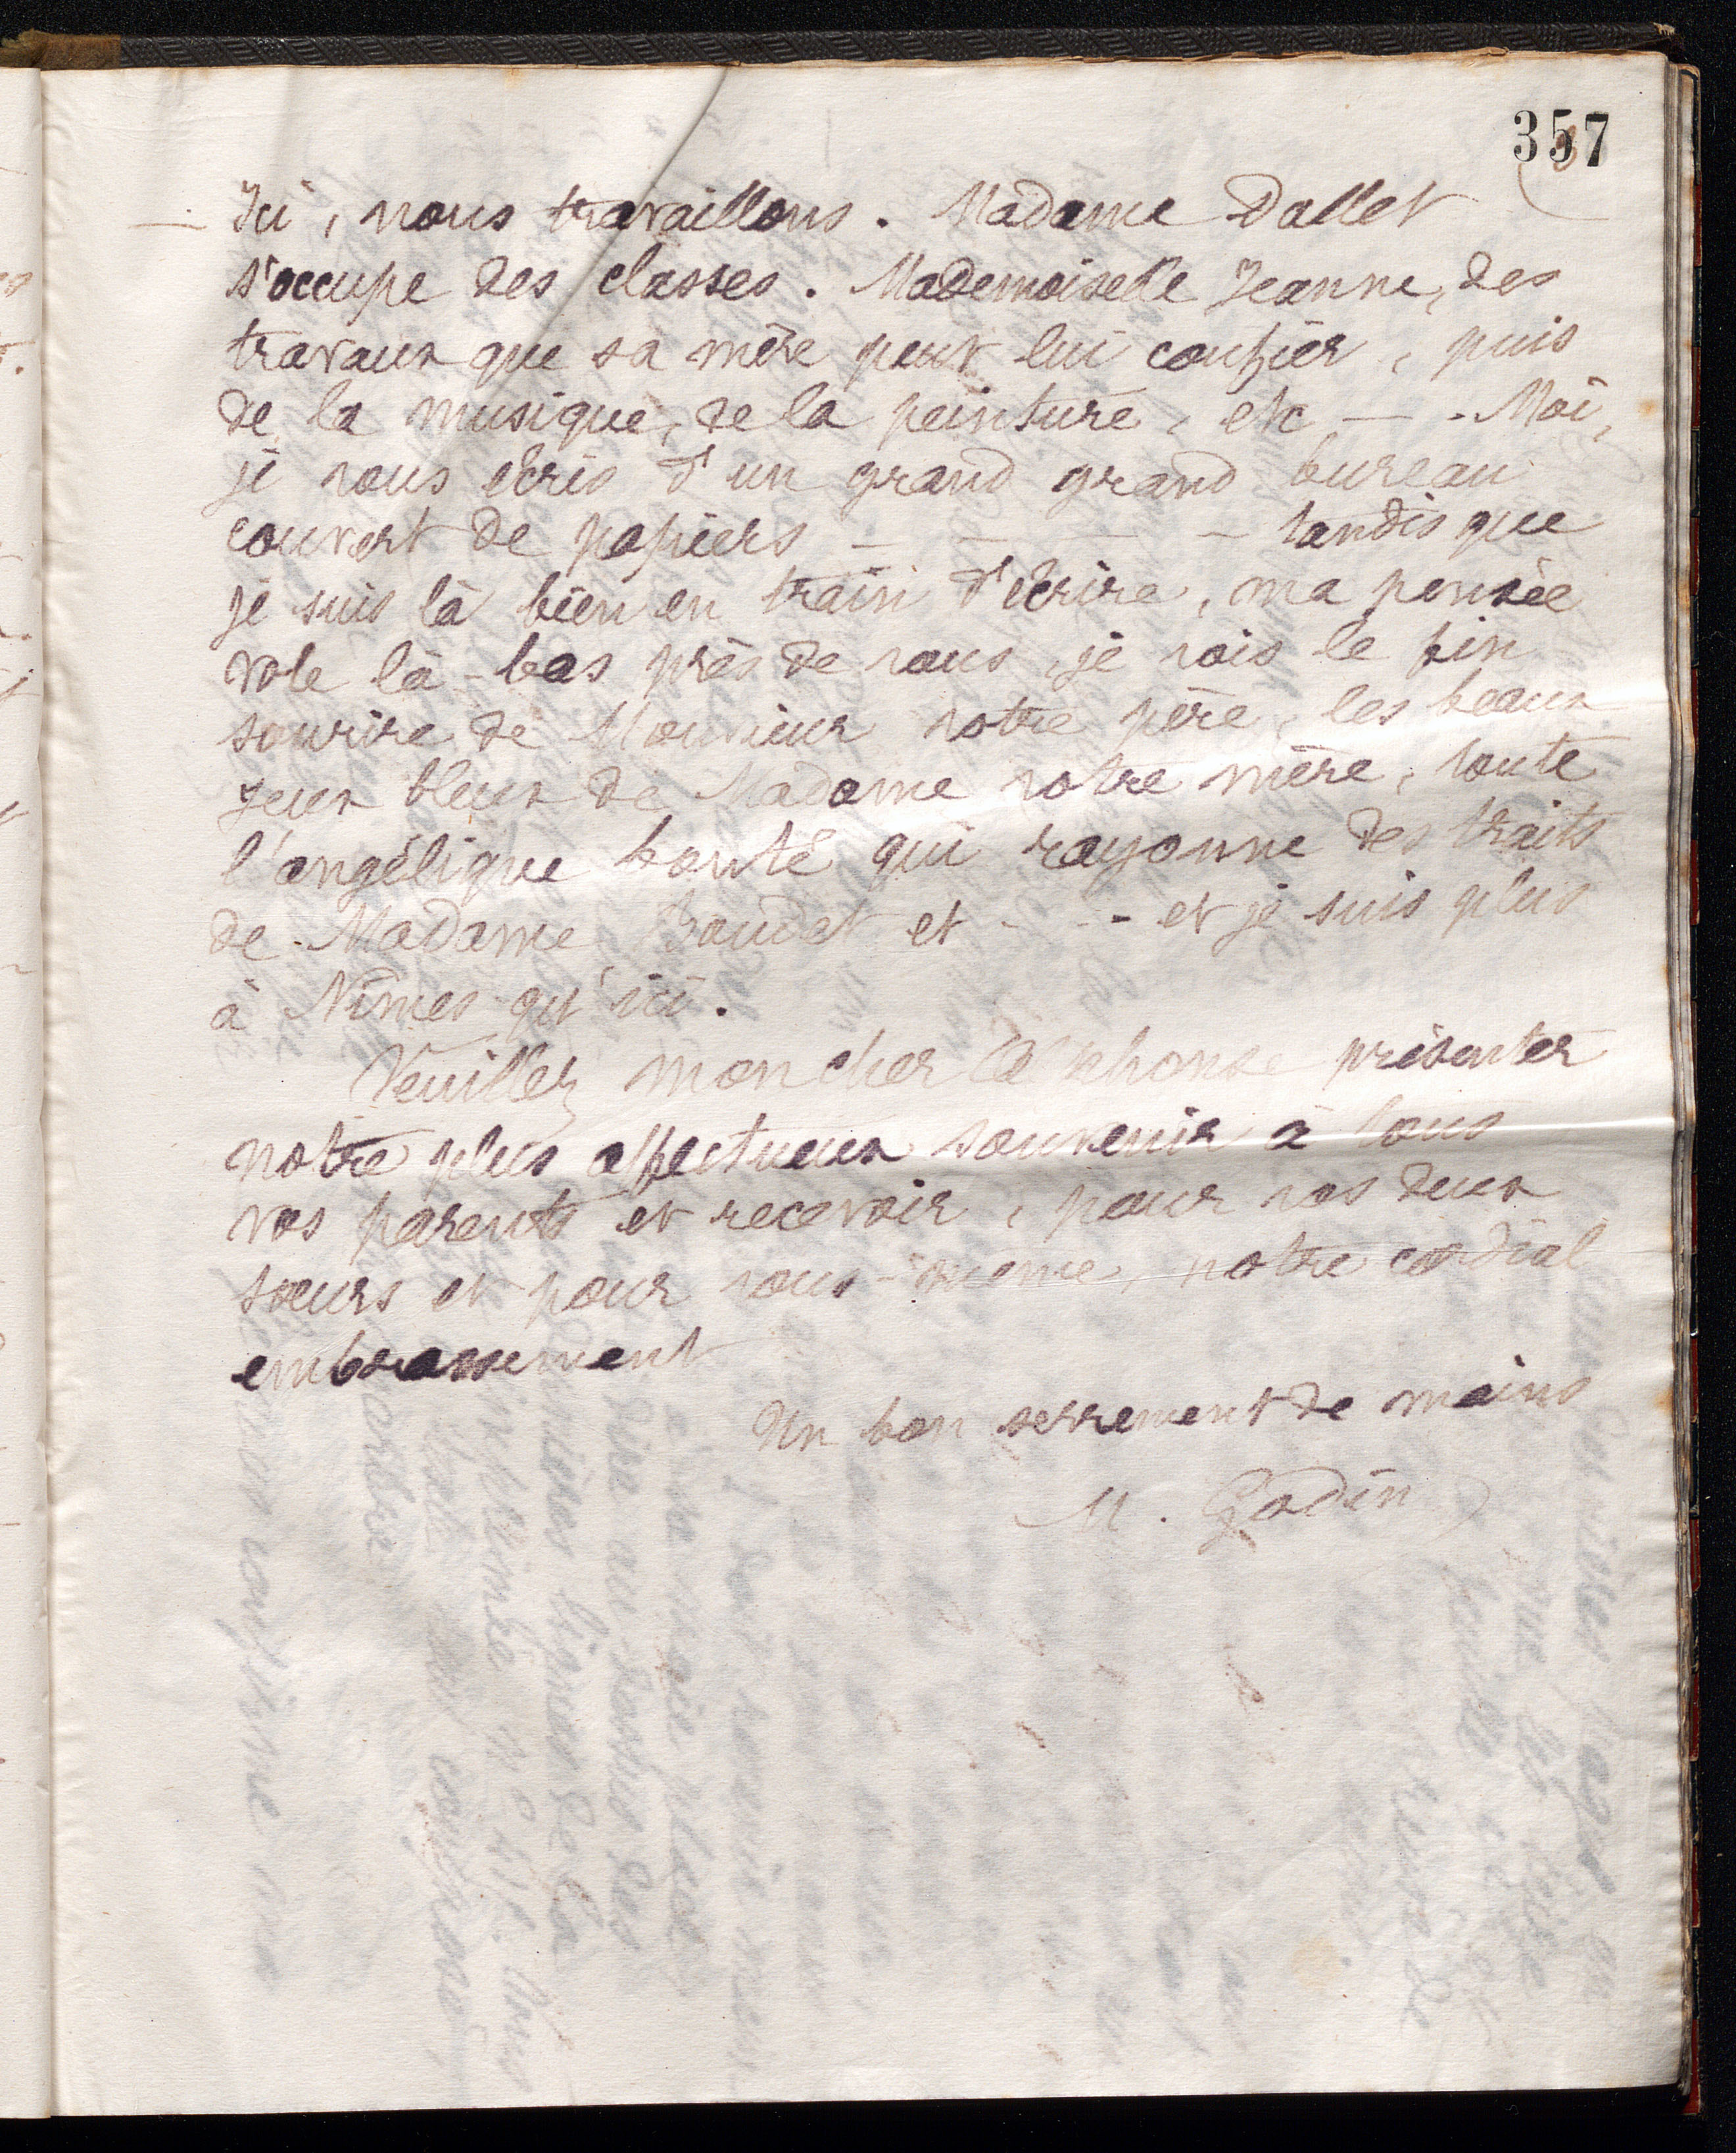 357
— Ici, nous travaillons. Madame Dallet
s'occupe des classes. Mademoiselle Jeanne, des
travaux que sa mère peut lui confier, puis
de la musique, de la peinture, etc — . Moi,
je vous écris d'un grand grand bureau
couvert de papiers — — — — tandis que
je suis là bien en train d'écrire, ma pensée
vole là-bas près de vous, je vois le fin
sourire de Monsieur votre père, les beaux
yeux bleux de Madame votre mère, toute
l'angélique bonté qui rayonne des traits
de Madame Boudet et - - - et je suis plus
à Nîmes qu'ici.
Veuillez mon cher Alphonse présenter
notre plus affectueux souvenir à tous
vos parents et recevoir, pour vos deux
sœurs et pour vous-même, notre cordial
embrassement
Un bon serrement de mains
M. Godin